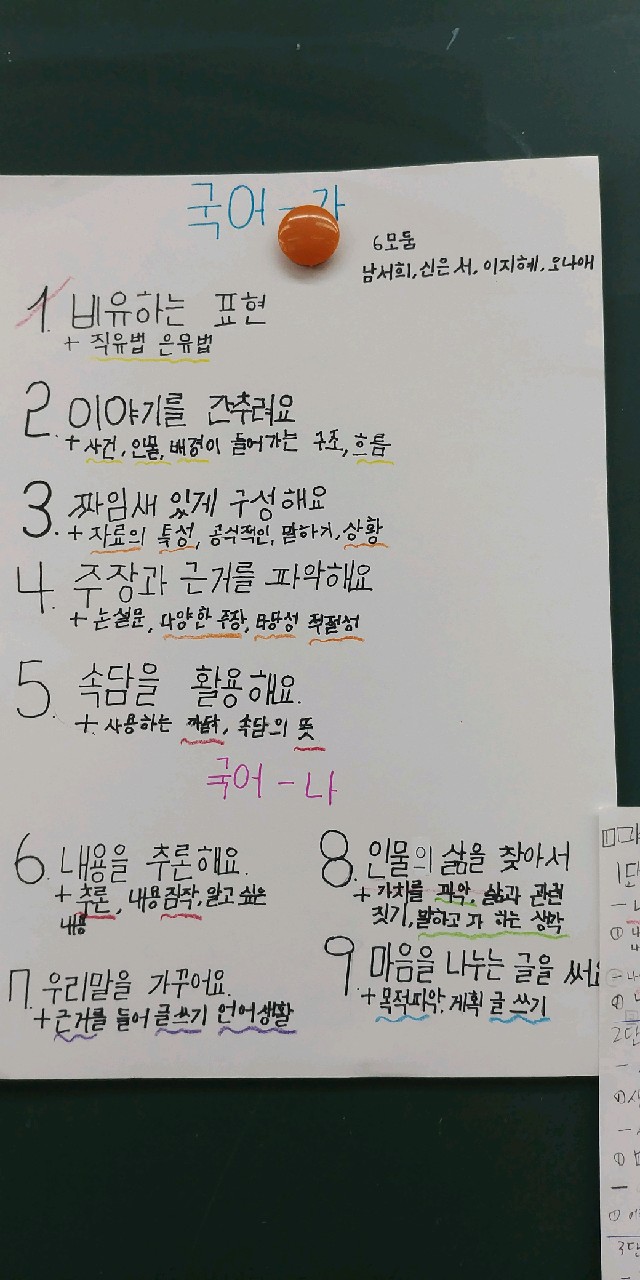 국어 - 가
6모둠
남서희, 신은서, 이지혜, 오나애
1. 비유하는 표현
+ 직유법 은유법
2. 이야기를 간추려요
+ 사건, 인물, 배경이 들어가는 구조, 흐름
3. 짜임새 있게 구성해요
+ 자료의 특성, 공식적인, 말하기, 상황
4. 주장과 근거를 파악해요
+ 논설문, 다양한 주장, 타당성 적절성
5. 속담을 활용해요.
+ 사용하는 까닭, 속담의 뜻
국어 - 나
6. 내용을 추론해요.
+ 추론, 내용 짐작, 알고 싶은
내용
7. 우리말을 가꾸어요.
+ 근거를 들어 글쓰기 언어생활
8. 인물의 삶을 찾아서
+ 가치를 파악, 삶과 관련
짓기, 말하고자 하는 생각
9. 마음을 나누는 글을 써요
+ 목적파악, 계획 글 쓰기
1단
2단
3단